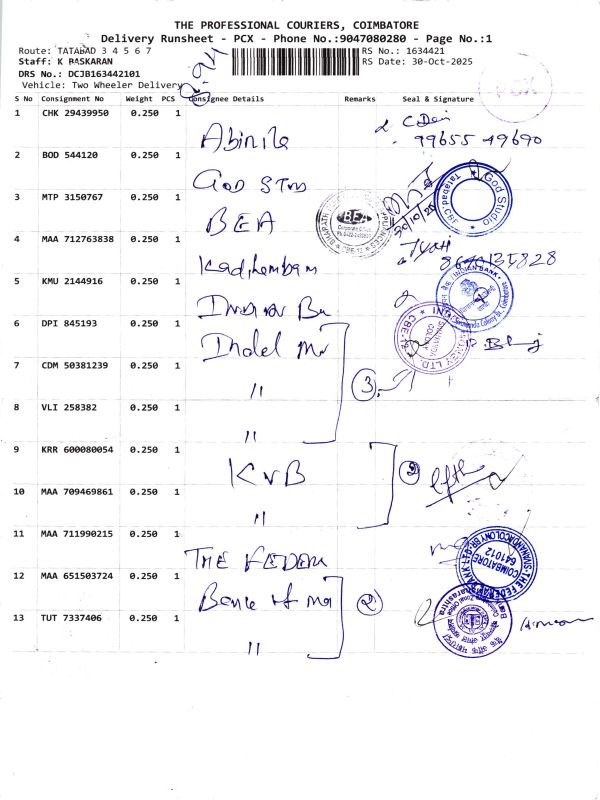 THE PROFESSIONAL COURIERS, COIMBATORE
Delivery Runsheet - PCX - Phone No.:9047080280 - Page No.:1
Route: TATABAD 3 4 5 6 7
RS No.: 1634421
Staff: K BASKARAN
RS Date: 30-Oct-2025
DRS No.: DCJB163442101
Vehicle: Two Wheeler Delivery
S No Consignment No Weight PCS Consignee Details Remarks Seal & Signature
1 CHK 29439950 0.250 1
99655 49690
2 BOD 544120 0.250 1 GOD STUD
God Studio
Tatabad.CBE
3 MTP 3150767 0.250 1 BEA
BEA
30/10/25
4 MAA 712763838 0.250 1 Kadhambam
5 KMU 2144916 0.250 1
INDIAN BANK
6 DPI 845193 0.250 1
7 CDM 50381239 0.250 1 "
3
8 VLI 258382 0.250 1 "
9 KRR 600080054 0.250 1 KVB
2
10 MAA 709469861 0.250 1 "
11 MAA 711990215 0.250 1 THE FEDERA
COIMBATORE
641012
12 MAA 651503724 0.250 1
2
13 TUT 7337406 0.250 1 "